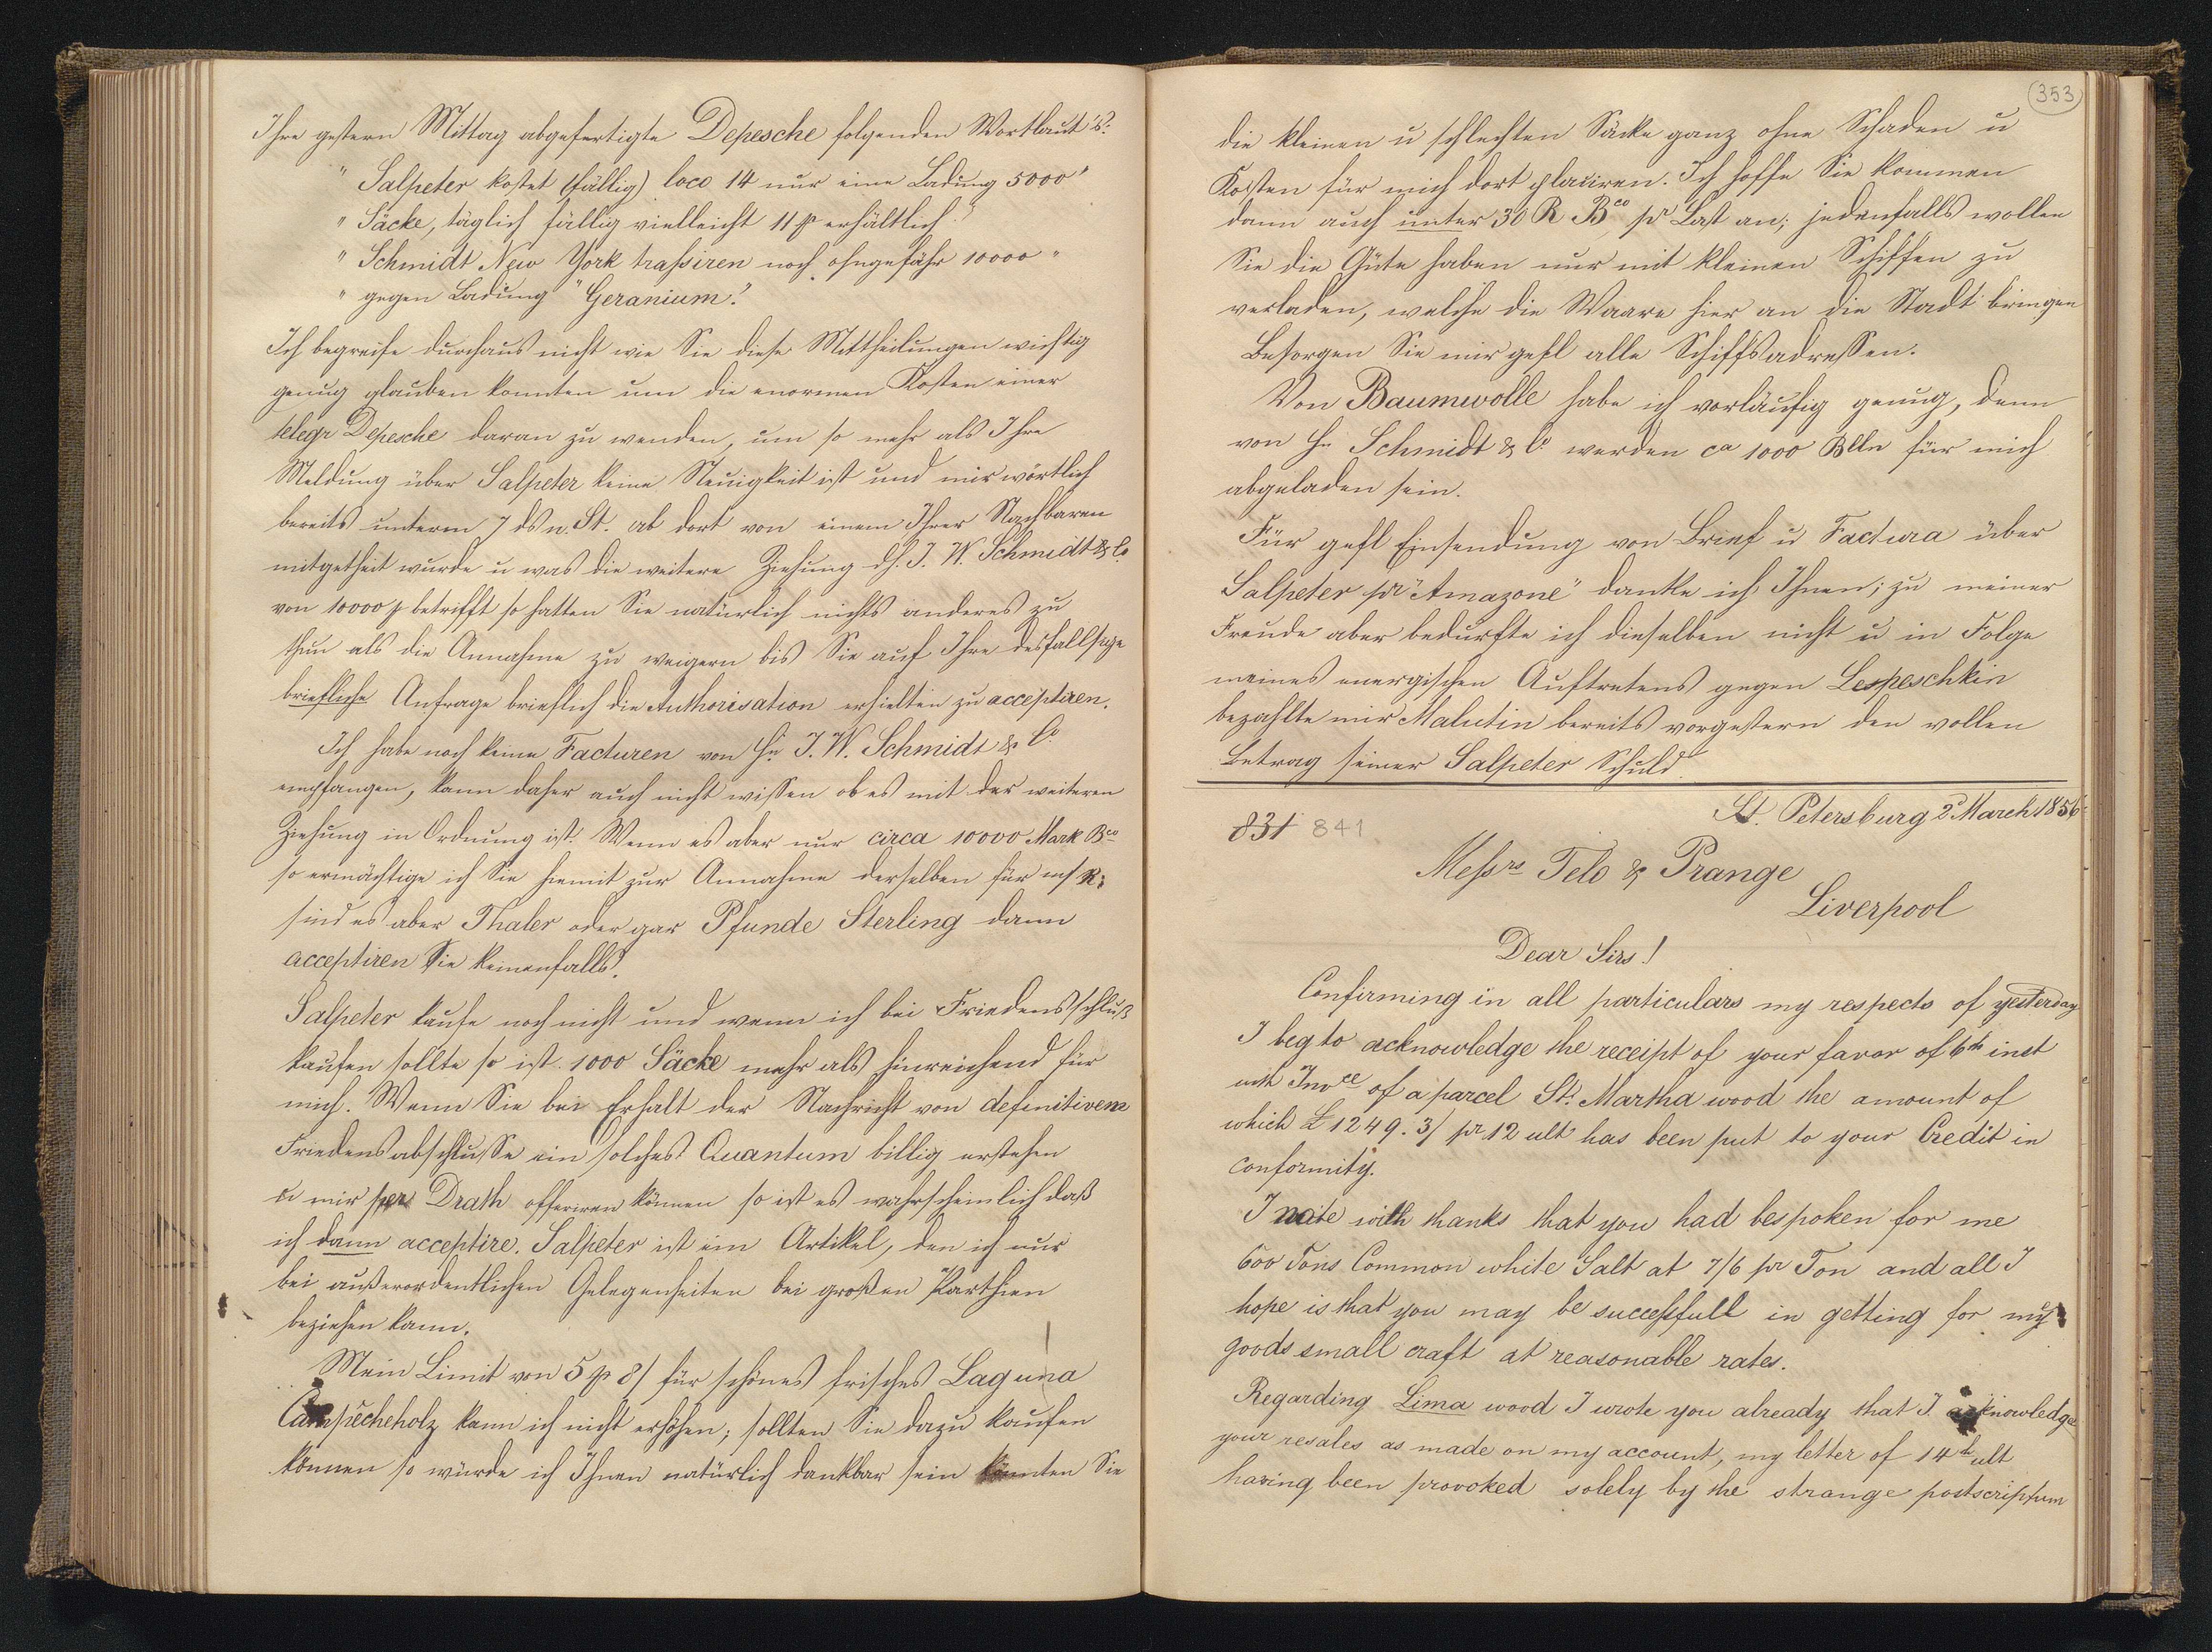 Ihre gestern Mittag abgefertigte Depesche folgenden Wortlauts:
" Salpeter kostet (fällig) loco 14 nur eine Ladung 5000 "
" Säcke, täglich fällig vielleicht 11 erhältlich "
" Schmidt New York trassiren noch ohngefähr 10000 "
" gegen Ladung "Geranium"
Ich begreife durchaus nicht wie Sie diese Mittheilungen wichtig
genug glauben konnten um die enormen Kosten einer
telegr Depesche daran zu wenden, um so mehr als Ihre
Meldung über Salpeter keine Neuigkeit ist und mir wörtlich
bereits unterm 7 ds n. St. ab dort von einem Ihrer Nachbaren
mitgetheit wurde u was die weitere Ziehung d. H. J. W. Schmidt & Co
von 10000 betrifft so hatten Sie natürlich nichts anderes zu
thun als die Annahme zu weigern bis Sie auf Ihre desfallsige
briefliche Anfrage brieflich die Authorisation erhielten zu acceptiren.
Ich habe noch keine Facturen von Hn J. W. Schmidt & Co
empfangen, kann daher auch nicht wissen ob es mit der weiteren
Ziehung in Ordnung ist. Wenn es aber nur circa 10000 Mark Bco
so ermächtige ich Sie hiemit zur Annahme derselben für m/R;
sind es aber Thaler oder gar Pfunde Sterling dann
acceptiren Sie keinenfalls.
Salpeter kaufe noch nicht und wenn ich bei Friedensschluß
kaufen sollte so ist 1000 Säcke mehr als hinreichend für
mich. Wenn Sie bei Erhalt der Nachricht von definitivem
Friedensabschlusse ein solches Quantum billig erstehen
u mir per Drath offeriren können so ist es wahrscheinlich daß
ich dann acceptire. Salpeter ist ein Artikel, den ich nur
bei außerordentlichen Gelegenheiten bei großen Parthien
beziehen kann.
Mein Limit von 5 8/ für schönes frisches Laguna
Campecheholz kann ich nicht erhöhen; sollten Sie dazu kaufen
können so würde ich Ihnen natürlich dankbar sein könnten Sie
353
die kleinen u schlechten Säcke ganz ohne Schaden u
Kosten für mich dort placiren. Ich hoffe Sie kommen
dann auch unter 30 R Bco pr Last an; jedenfalls wollen
Sie die Güte haben nur mit kleinen Schiffen zu
verladen, welche die Waare hier an die Stadt bringen
Besorgen Sie mir gefl alle Schiffsadressen.
Von Baumwolle habe ich vorläufig genug, denn
von Hn Schmidt & Co werden ca 1000 Blln für mich
abgeladen sein.
Für gefl Einsendung von Brief u Factura über
Salpeter pr "Amazone" danke ich Ihnen; zu meiner
Freude aber bedurfte ich dieselben nicht u in Folge
meines energischen Auftretens gegen Lespeschkin
bezahlte mir Malutin bereits vorgestern den vollen
Betrag seiner Salpeter Schuld.
St. Petersburg 2 March 1856
831 841
Messrs Telo & Prange
Liverpool
Dear Sirs!
Confirming in all particulars my respects of yesterday
I beg to acknowledge the receipt of your favor of 6th inst
with Invce of a parcel St. Martha wood the amount of
which £ 1249. 3/ pr 12 ult has been put to your Credit in
conformity.
I note with thanks that you had bespoken for me
600 Tons Common white Salt at 7/6 pr Ton and all I
hope is that you may be successfull in getting for my
goods small craft at reasonable rates.
Regarding Lima wood I wrote you already that I acknowledge
your resales as made on my account, my letter of 14th ult
having been provoked solely by the strange postscriptum